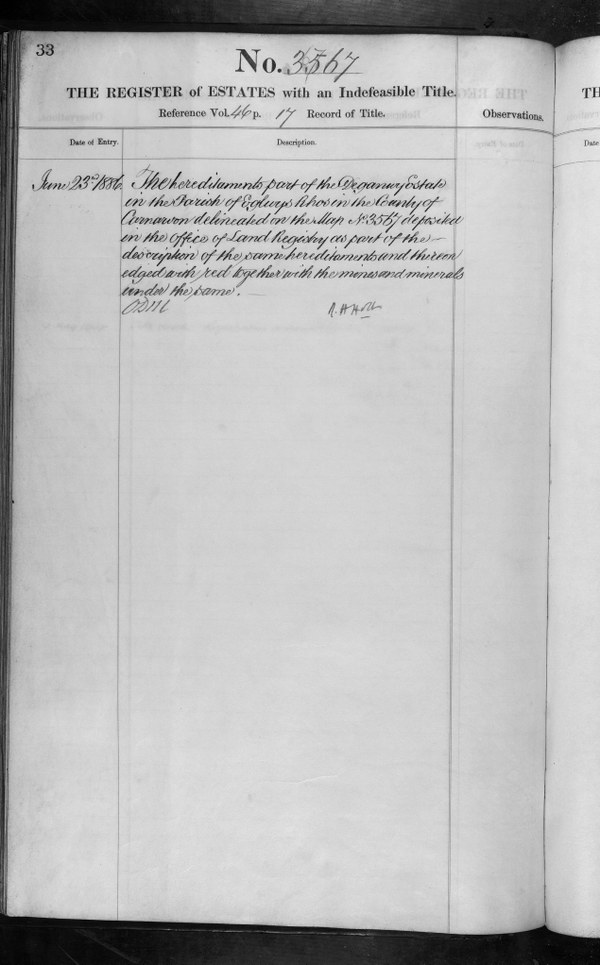 33
No. 3567
THE REGISTER of ESTATES with an Indefeasible Title.
Reference Vol. 46 p. 17 Record of Title.
Observations.
Date of Entry.
Description.
June 23rd 1886.
The hereditaments part of the Deganwy Estate
in the Parish of Eglwys Rhos in the County of
Carnarvon delineated on the Map No. 3567 deposited
in the Office of Land Registry as part of the
description of the same hereditaments and thereon
edged with red together with the mines and minerals
under the same.
R. H. Holt
TH
Date